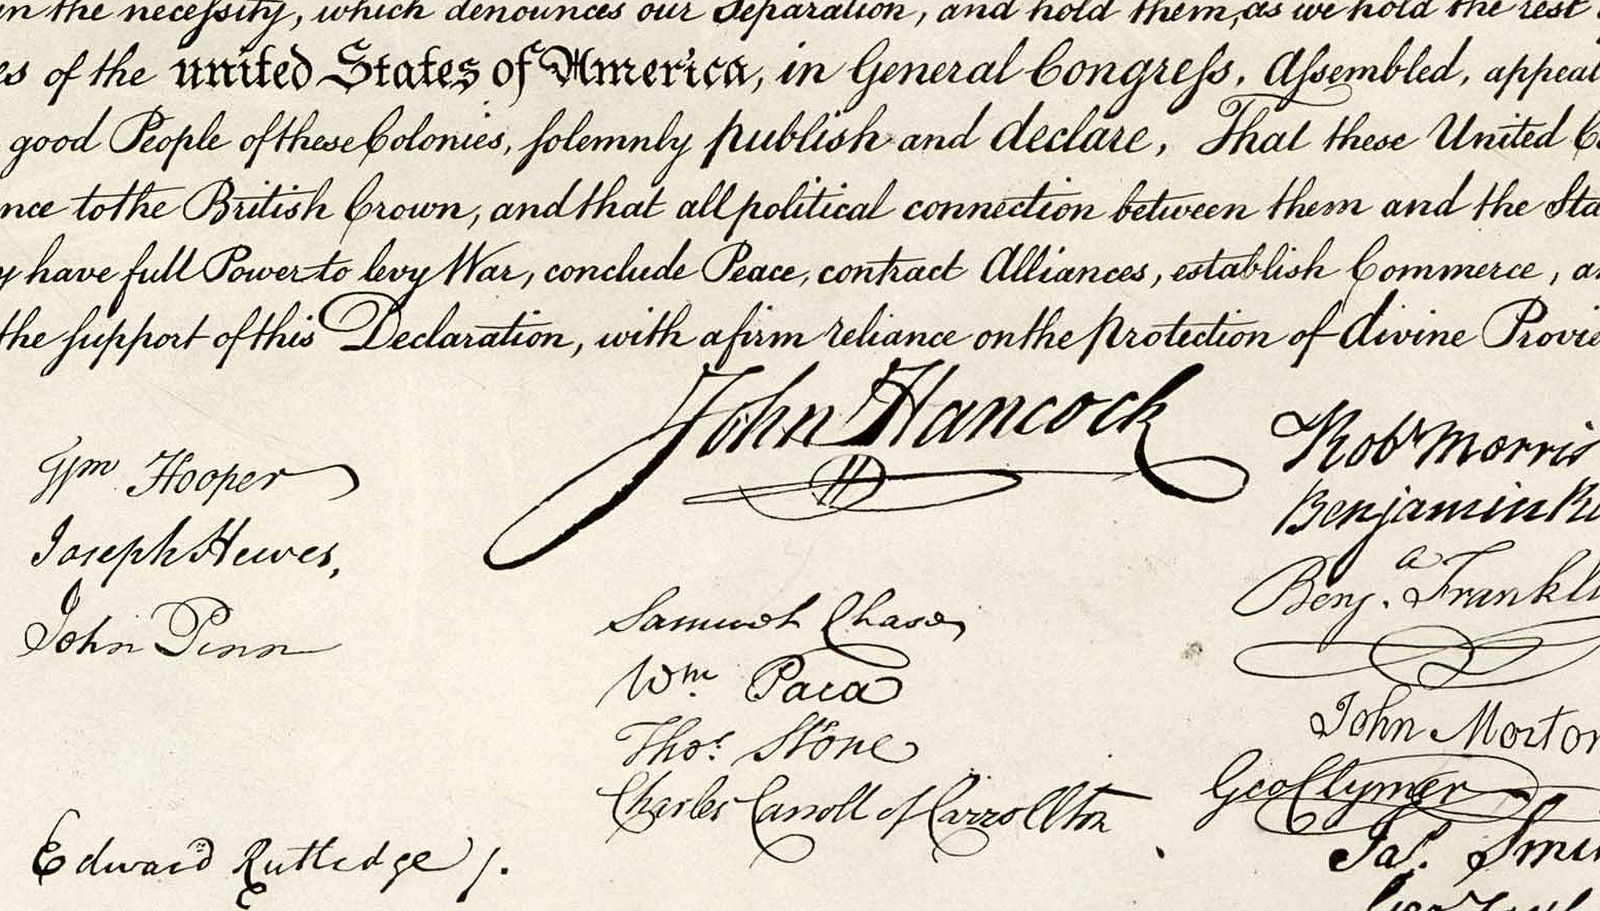 in the necessity, which denounces our Separation, and hold them, as we hold the rest
es of the united States of America, in General Congress, Assembled, appeal
good People of these Colonies, solemnly publish and declare, That these United
nce to the British Crown, and that all political connection between them and the Sta
y have full Power to levy War, conclude Peace, contract Alliances, establish Commerce, a
the support of this Declaration, with a firm reliance on the protection of divine Provi
John Hancock
Wm Hooper
Joseph Hewes,
John Penn
Edward Rutledge /.
Samuel Chase
Wm. Paca
Thos. Stone
Charles Carroll of Carrollton
Robt Morris
Benjamin Ru
Benja. Frankli
John Morton
Geo Clymer
Jas. Smi